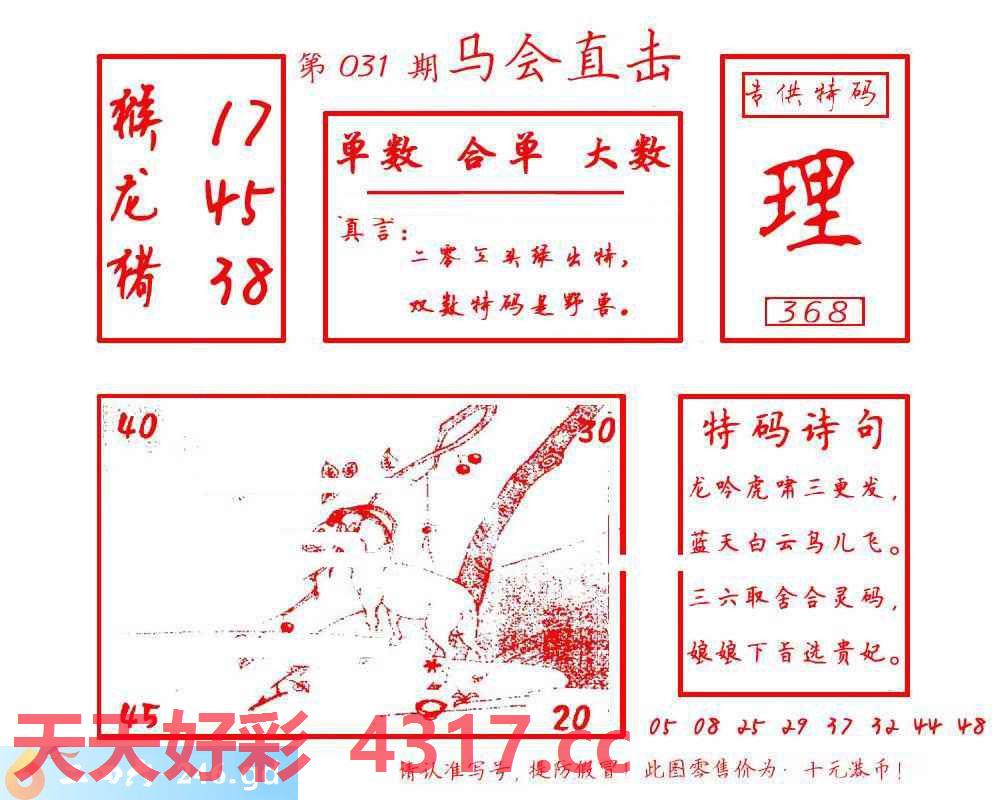 第 031 期 马会直击
猴 17
龙 45
猪 38
单数 合单 大数
真言：
二零三头绿出特，
双数特码是野兽。
专供特码
理
368
40
30
45
20
特码诗句
龙吟虎啸三更发，
蓝天白云鸟儿飞。
三六取舍合灵码，
娘娘下旨选贵妃。
05 08 25 29 37 32 44 48
天天好彩 4317.cc
246.gd
请认准写号，提防假冒！此图零售价为·十元港币！